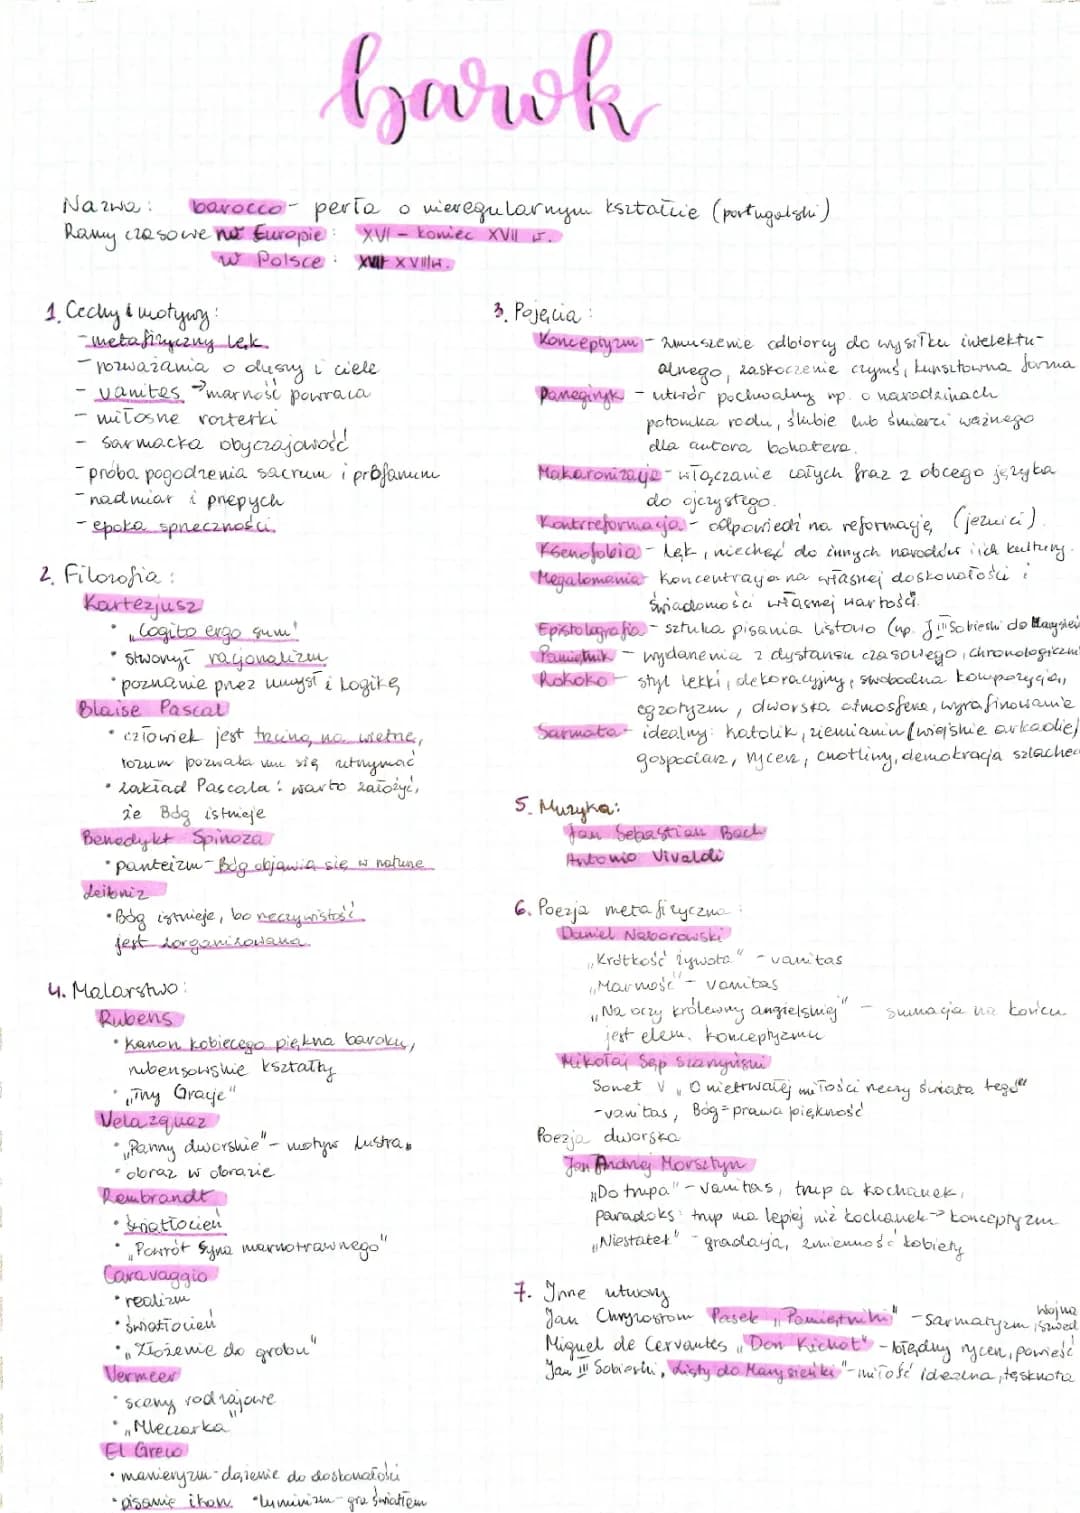 barok
Nazwa: barocco - perła o nieregularnym kształcie (portugalski)
Ramy czasowe na Europie: XVI - koniec XVII w.
w Polsce: XVIII w.
1. Cechy i motywy:
- metafizyczny lęk
- rozważania o duszy i ciele
- vanitas → marność powraca
- miłosne rozterki
- sarmacka obyczajowość
- próba pogodzenia sacrum i profanum
- nadmiar i przepych
- epoka sprzeczności
2. Filozofia:
Kartezjusz
• „Cogito ergo sum"
• stworzył racjonalizm
• poznanie przez umysł i logikę
Blaise Pascal
• człowiek jest trzciną na wietrze,
rozum pozwala mu się utrzymać
• zakład Pascala: warto założyć,
że Bóg istnieje
Benedykt Spinoza
• panteizm - Bóg objawia się w naturze
Leibniz
• Bóg istnieje, bo rzeczywistość
jest zorganizowana
4. Malarstwo:
Rubens
• kanon kobiecego piękna baroku,
rubensowskie kształty
• „Trzy Gracje"
Velazquez
• „Panny dworskie" - motyw lustra
• obraz w obrazie
Rembrandt
• światłocień
• „Powrót syna marnotrawnego"
Caravaggio
• realizm
• światłocień
• „Złożenie do grobu"
Vermeer
• sceny rodzajowe
• „Mleczarka"
El Greco
• manieryzm - dążenie do doskonałości
• pisanie ikon • luminizm - gra światłem
3. Pojęcia:
Konceptyzm - zmuszenie odbiorcy do wysiłku intelektu-
alnego, zaskoczenie czymś, kunsztowna forma
Panegiryk - utwór pochwalny np. o narodzinach
potomka rodu, ślubie lub śmierci ważnego
dla autora bohatera.
Makaronizacja - włączanie całych fraz z obcego języka
do ojczystego.
Kontrreformacja - odpowiedź na reformację (jezuici)
Ksenofobia - lęk, niechęć do innych narodów i ich kultury.
Megalomania - koncentracja na własnej doskonałości i
świadomości własnej wartości.
Epistolografia - sztuka pisania listowo (np. J III Sobieski do Marysień
Pamiętnik - wydarzenia z dystansu czasowego, chronologiczn
Rokoko - styl lekki, dekoracyjny, swobodna kompozycja,
egzotyzm, dworska atmosfera, wyrafinowanie
Sarmata - idealny: katolik, ziemianin (wiejskie arkadie)
gospodarz, rycerz, cnotliwy, demokracja szlachec
5. Muzyka:
Jan Sebastian Bach
Antonio Vivaldi
6. Poezja metafizyczna:
Daniel Naborowski
„Krótkość żywota" - vanitas
„Marność" - vanitas
„Na oczy królewny angielskiej" - sumacja na końcu
jest elem. konceptyzmu
Mikołaj Sęp Szarzyński
Sonet V „O nietrwałej miłości rzeczy świata tego"
- vanitas, Bóg = prawa piękność
Poezja dworska
Jan Andrzej Morsztyn
„Do trupa" - vanitas, trup a kochanek,
paradoks: trup ma lepiej niż kochanek → konceptyzm
„Niestatek" - gradacja, zmienność kobiety
7. Inne utwory
Jan Chryzostom Pasek „Pamiętniki" - sarmatyzm, wojna szwed
Miguel de Cervantes „Don Kichot" - błędny rycerz, powieść
Jan III Sobieski „Listy do Marysieńki" - miłość idealna, tęsknota